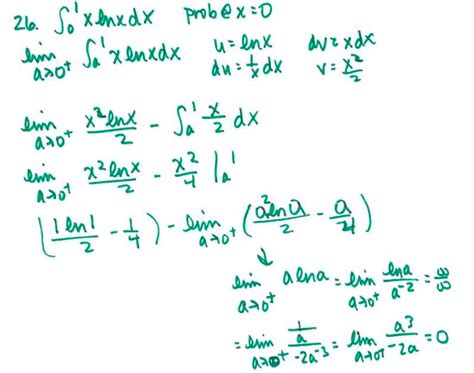 26. ∫₀¹ xlnxdx prob@x=0
lim a→0⁺ ∫ₐ¹ xlnxdx u=lnx dv=xdx
du=1/x dx v=x²/2
lim a→0⁺ x²lnx/2 - ∫ₐ¹ x/2 dx
lim a→0⁺ x²lnx/2 - x²/4 |ₐ¹
(1ln1/2 - 1/4) - lim a→0⁺ (a²lna/2 - a/4)
↓
lim a→0⁺ alna = lim a→0⁺ lna/a⁻² = ∞/∞
= lim a→0⁺ (1/a)/(-2a⁻³) = lim a→0⁺ a³/-2a = 0